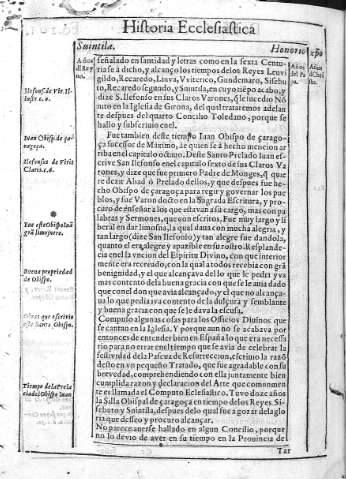 Historia Ecclesiastica
Suintila.
Honorio
Años
señalado en santidad y letras como en la sexta Centu-
ria se à dicho, y alcanço los tiempos delos Reyes Leuvi-
gildo, Recaredo, Liuva, Viterico, Gundemaro, Sisebu-
to, Recaredo segundo, y Suintila, en cuyo tiépo acabo, y
dize S. Ilefonso en sus Claros Varones, que sucedio Nó
nito en la Iglesia de Girona, del qual trataremos adelan-
te despues del quarto Concilio Toledano, porque se
hallo y subscrivio en el.
Fue tambien deste tiempo Iuan Obispo de çarago-
ça sucessor de Maximo, de quien se à hecho mencion ar
riba en el capitulo octauo. Deste Santo Prelado Iuan es-
crive San Ilefonso en el capitulo sexto de sus Claros Va
rones, y dize que fue primero Padre de Monges,
re dezir Abad ó Prelado dellos, y que despues fue he-
cho Obispo de çaragoça para regir y governar los pue
blos, y fue Varon docto en la Sagrada Escritura, y pro-
curo de enseñar a los que estavan a su cargo, mas con pa
labras y Sermones, que con escritos. Fue muy largo y li
beral en dar limosna, la qual dava con mucha alegria, y
tan largo (dize San Ilefonso) y tan alegre fue dandola,
quanto el era alegre y apazible en su rostro. Resplande-
cia en el la vncion del Espiritu Divino, con que interior
mente era recreado, con la qual a todos recebia con grā
benignidad, y el que alcançava dello que le pedia yva
mas contento dela buena gracia con que se le avia dado
que con el don que avia alcançado, y el que no alcança-
ua lo que pedia yva contento de la dulçura y semblante
y buena gracia con que se le dava la escusa.
Compuso algunas cosas para los Officios Diuinos que
se cantan en la Iglesia. Y porque aun no se acabava por
entonces de entender bien en España lo que era necessa
rio para no errar en el tiempo que se avia de celebrar la
festividad dela Pascua de Resurreccion, escrivio la razō
desto en vn pequeño Tratado, que fue agradable con su
brevedad, comprehendiendo con ella juntamente bien
cumplida razon y declaracion del Arte que comunmen
te es llamada el Computo Eclesiastico. Tuvo doze años
la Silla Obispal de çaragoça en tiempo delos Reyes Si-
sebuto y Suintila, despues delo qual fue a gozar dela glo
ria que desseo y procuro alcançar.
No parece averse hallado en algun Concilio, porque
no lo devio de aver en su tiempo en la Provincia de
Tar
Iuan Obispo de ça-
ragoça.
Ilefonso de Viris
Claris.
Fue este Obispo
limosnero.
Buena propriedad
de Obispo.
Obras que escrivio
este Santo Obispo.
Tiempo dela Prela
cia del Obispo Iuan